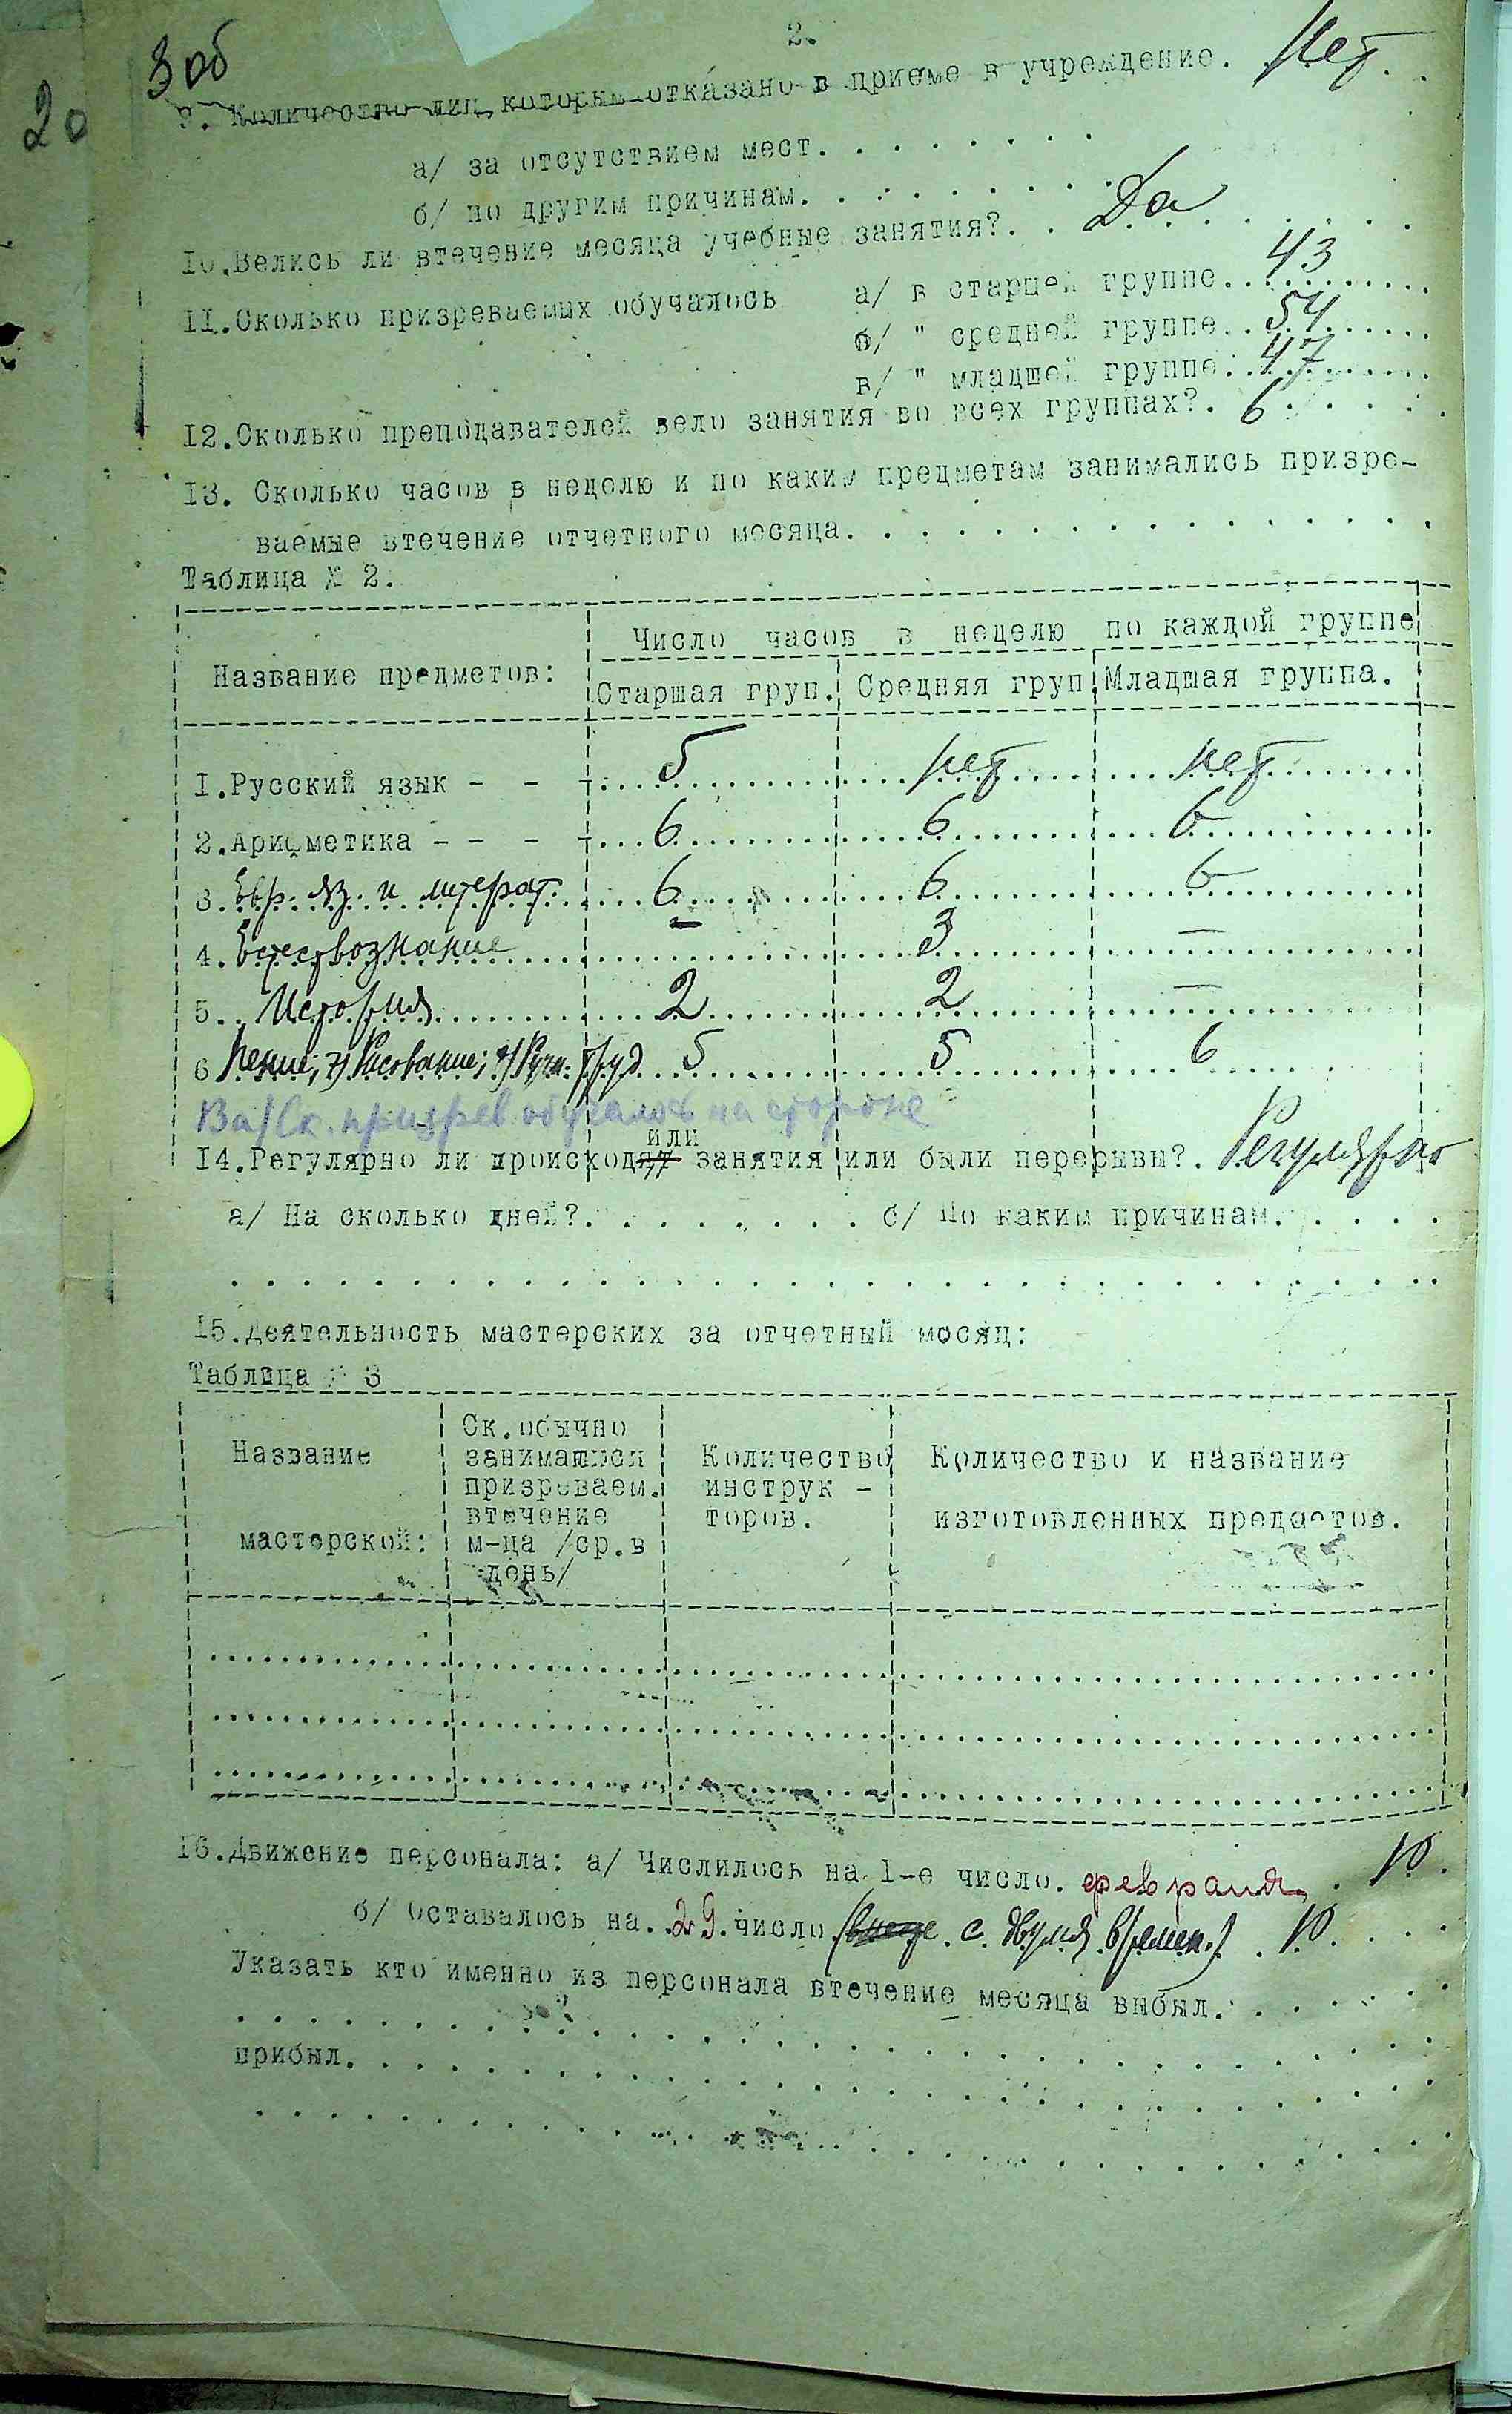 2.
3 об
20
9. Количество лиц, которым отказано в приеме в учреждение. Нет.
а/ за отсутствием мест. . . . . . . . .
б/ по другим причинам. . . . . . . . .
10.Велись ли втечение месяца учебные занятия?. . Да . . . . . .
11.Сколько призреваемых обучалось а/ в старшей группе. . 43 . . . .
б/ " средней группе. . 54 . . . .
в/ " младшей группе. . 47 . . . .
12.Сколько преподавателей вело занятия во всех группах?. 6 . . . .
13. Сколько часов в неделю и по каким предметам занимались призре-
ваемые втечение отчетного месяца. . . . . . . . . . . . . . . . .
Таблица № 2.
Число часов в неделю по каждой группе
Название предметов: Старшая груп. Средняя груп. Младшая группа.
1.Русский язык - - - 5 нет нет
2.Арифметика - - - - 6 6 6
3. Евр. яз. и литерат. 6 6 6
4. Естествознание – 3 –
5. История 2 2 –
6 Пение; 7) Рисование; 8) Ручн. труд 5 5 6
призрев. обучалось на стороне
или
14.Регулярно ли происходят занятия или были перерывы?. Регулярно
а/ На сколько дней?. . . . . . . . б/ По каким причинам. . . . .
. . . . . . . . . . . . . . . . . . . . . . . . . . . . . . . . . .
15.Деятельность мастерских за отчетный месяц:
Таблица № 3
Название мастерской: Ск.обычно занимающихся призреваем. втечение м-ца /ср.в день/ Количество инструк - торов. Количество и название изготовленных предметов.
16.Движение персонала: а/ Числилось на 1-е число. февраля. . 10.
б/ Оставалось на. .29. число (вместе. с. двумя. времен.). . 10. . . .
Указать кто именно из персонала втечение месяца выбыл. . . . . . .
. . . . . . . . . . . . . . . . . . . . . . . . . . . . . . . . . .
прибыл. . . . . . . . . . . . . . . . . . . . . . . . . . . . . . .
. . . . . . . . . . . . . . . . . . . . . . . . . . . . . . . . . .